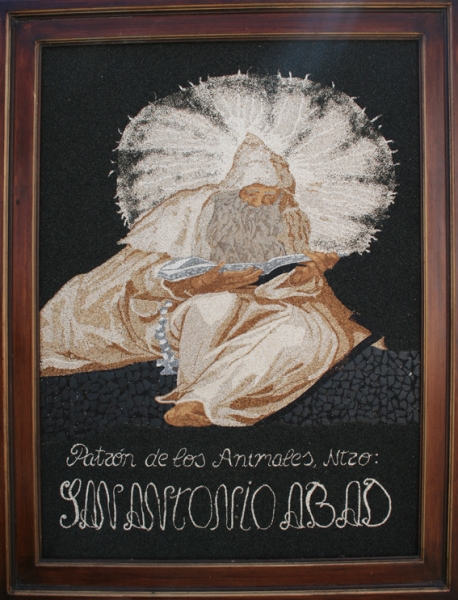 Patrón de los Animales, Ntro:
SAN ANTONIO ABAD